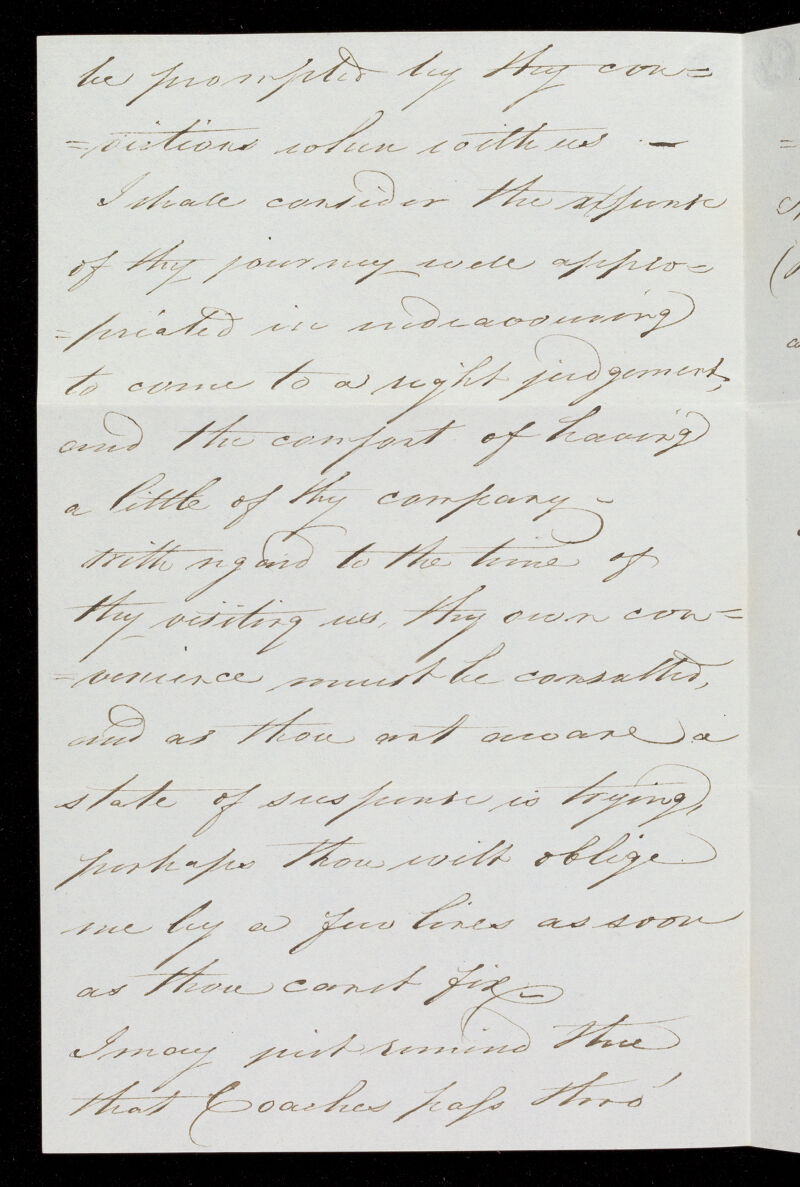 be prompted by thy con=
=victions when with us —
I shall consider the expense
of thy journey well appro=
=priated in endeavouring
to come to a right judgement,
and the comfort of having
a little of thy company –
With regard to the time of
thy visiting us, thy own con=
=venience must be consulted,
and as thou art aware a
state of suspense is trying,
perhaps thou wilt oblige
me by a few lines as soon
as thou canst fix –
I may just remind thee
that Coaches pass thro'